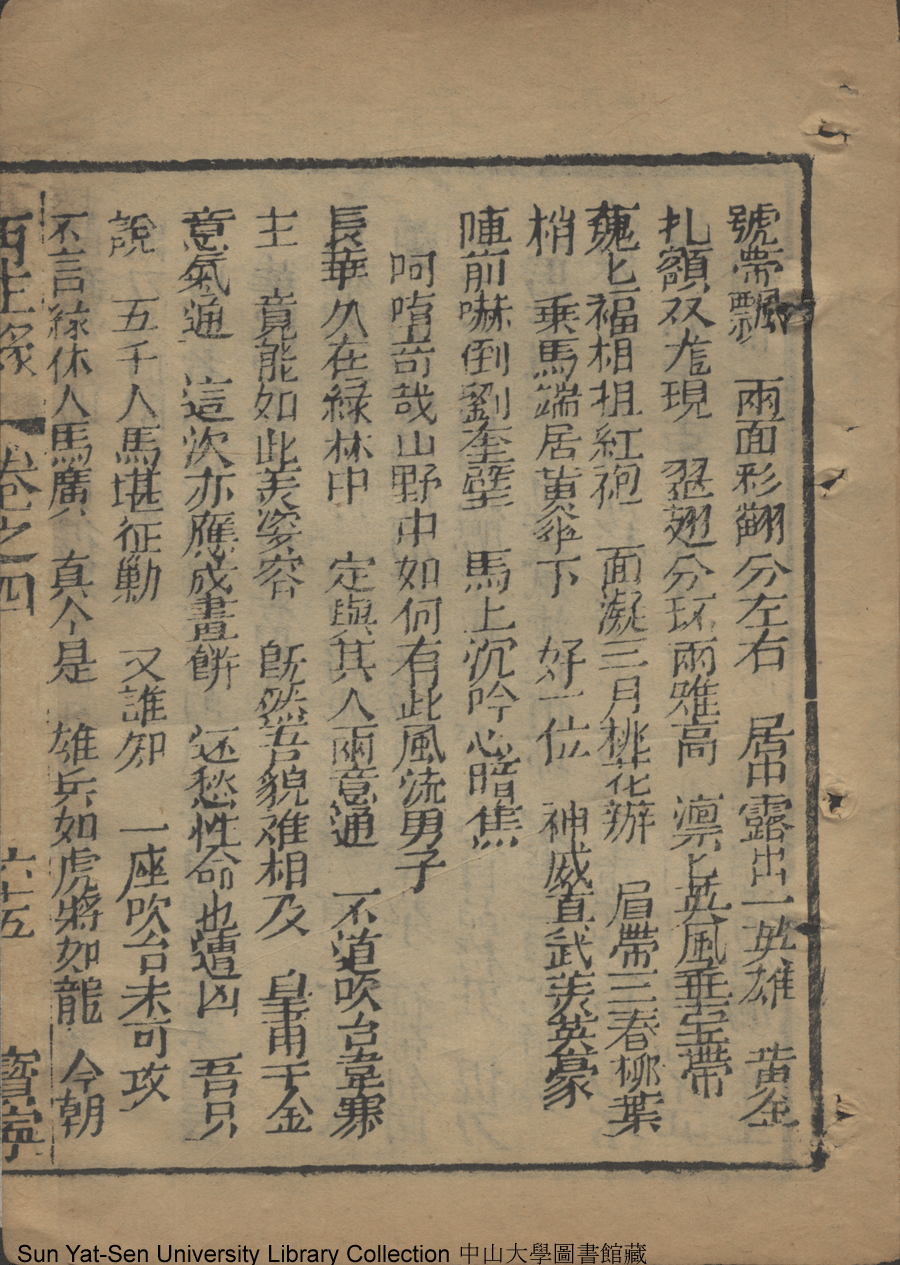 號帶飄　兩面形翻分左右　居中露出一英雄　黄金
扎額双龙現　翠翅分玳雨雅高　凛匕英風垂玉帶
巍匕福相担紅袍　面凝三月桃花辦　眉帶三春柳葉
梢　乘馬端居黄傘下　好一位　神威真武美英豪
陣前嚇倒劉奎璧　馬上沉吟心暗焦
呵唷竒哉山野中如何有此風流男子
長華久在緑林中　定與其人兩意通　不道吹台韋寨
主　竟能如此美姿容　旣然吾貌难相及　皇甫千金
意氣通　這次亦應成畫餅　还愁性命也遭凶　吾只
說　五千人馬堪征勦　又誰知　一座吹台未可攻
不言緣休人馬廣　真个是　雄兵如虎將如龍　今朝
再生緣　卷之四　六十五　寳寧
Sun Yat-Sen University Library Collection 中山大學圖書館藏